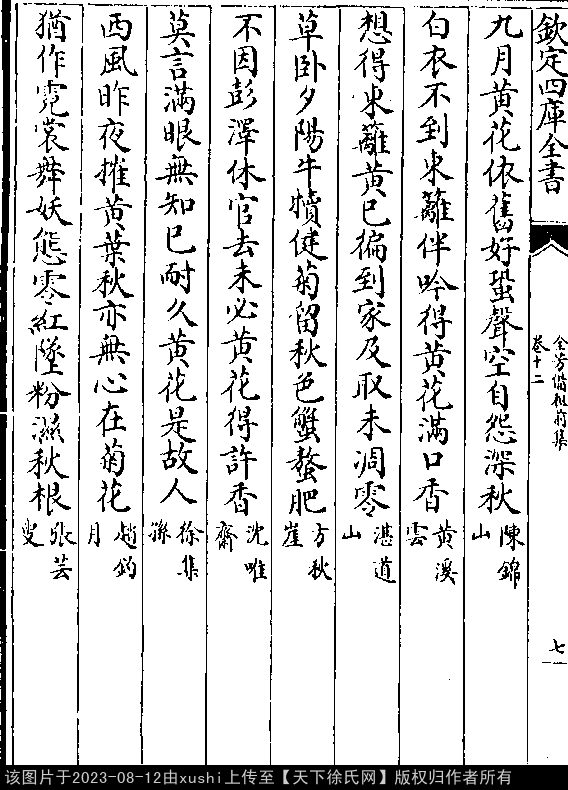 欽定四庫全書
全芳備祖前集
卷十二
七
九月黄花依舊好蛩聲空自怨深秋陳錦山
白衣不到東籬伴吟得黄花滿口香黄溪雲
想得東籬黄已徧到家及取未凋零湛道山
草卧夕陽牛犢健菊留秋色蟹螯肥方秋崖
不因彭澤休官去未必黄花得許香沈唯齋
莫言滿眼無知已耐久黄花是故人徐集孫
西風昨夜摧黄葉秋亦無心在菊花趙釣月
猶作霓裳舞妖態零紅墜粉滋秋根張芸叟
该图片于2023-08-12由xushi上传至【天下徐氏网】版权归作者所有